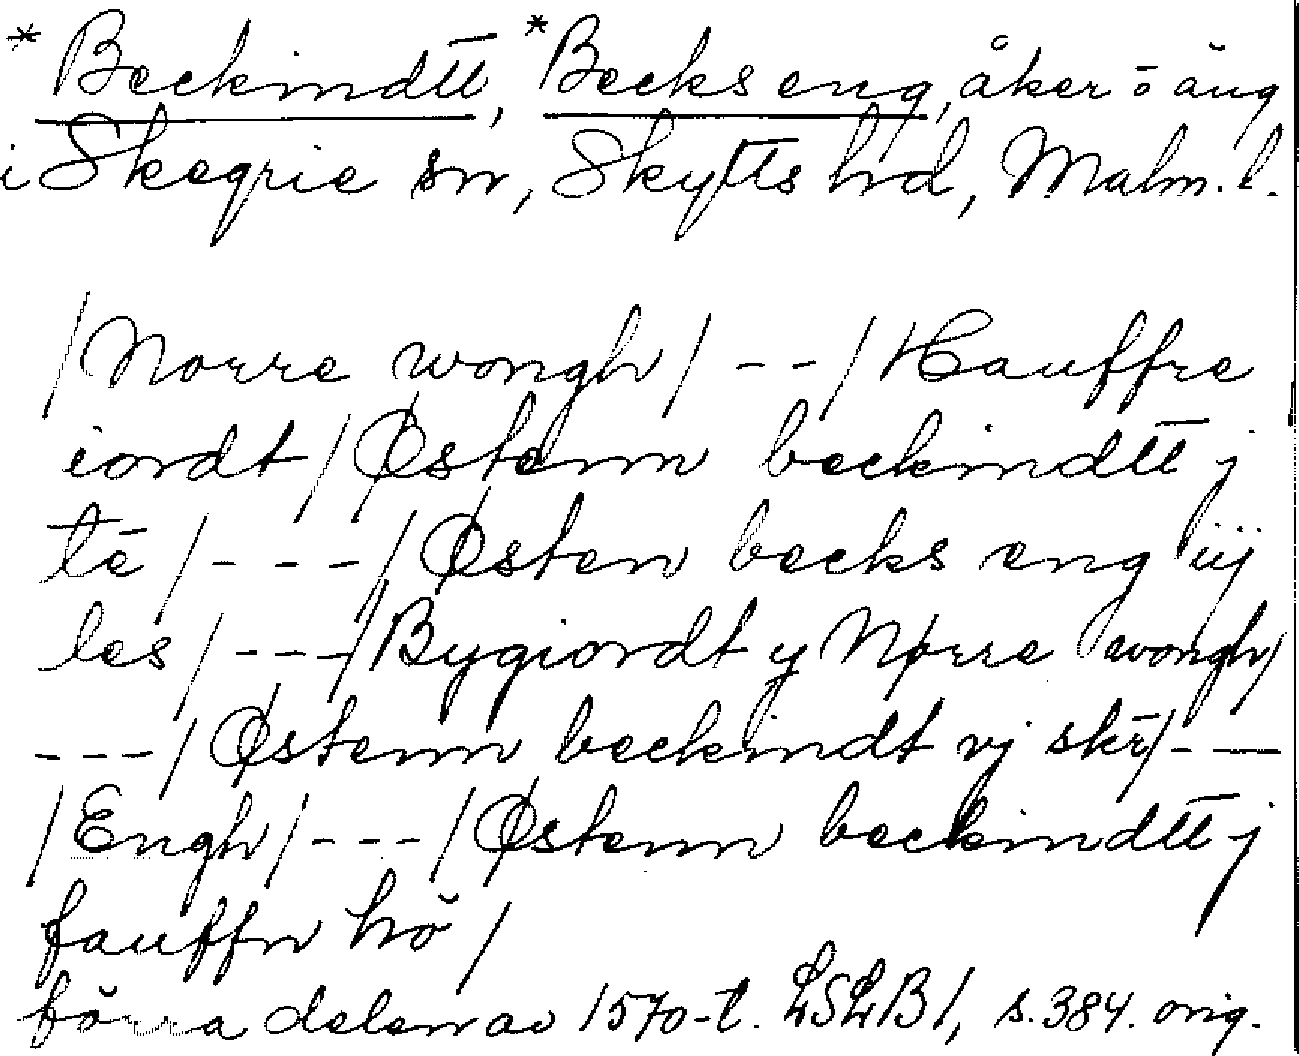 * Beckindtt, *Becks eng, åker o äng
i Skegrie sn, Skytts hd, Malm. l.
/Norre wongh/ --/Hauffre
iordt/Østenn beckindtt j
tē/---/Østen becks eng iij
les/---/Bygiordt y Nørre wongh/
---/Østenn beckindt vj skr̄/---
/Engh/---/Østenn beckindtt j
fauffn hö/
förra delen av 1570-t. LSLB1, s.384. orig.